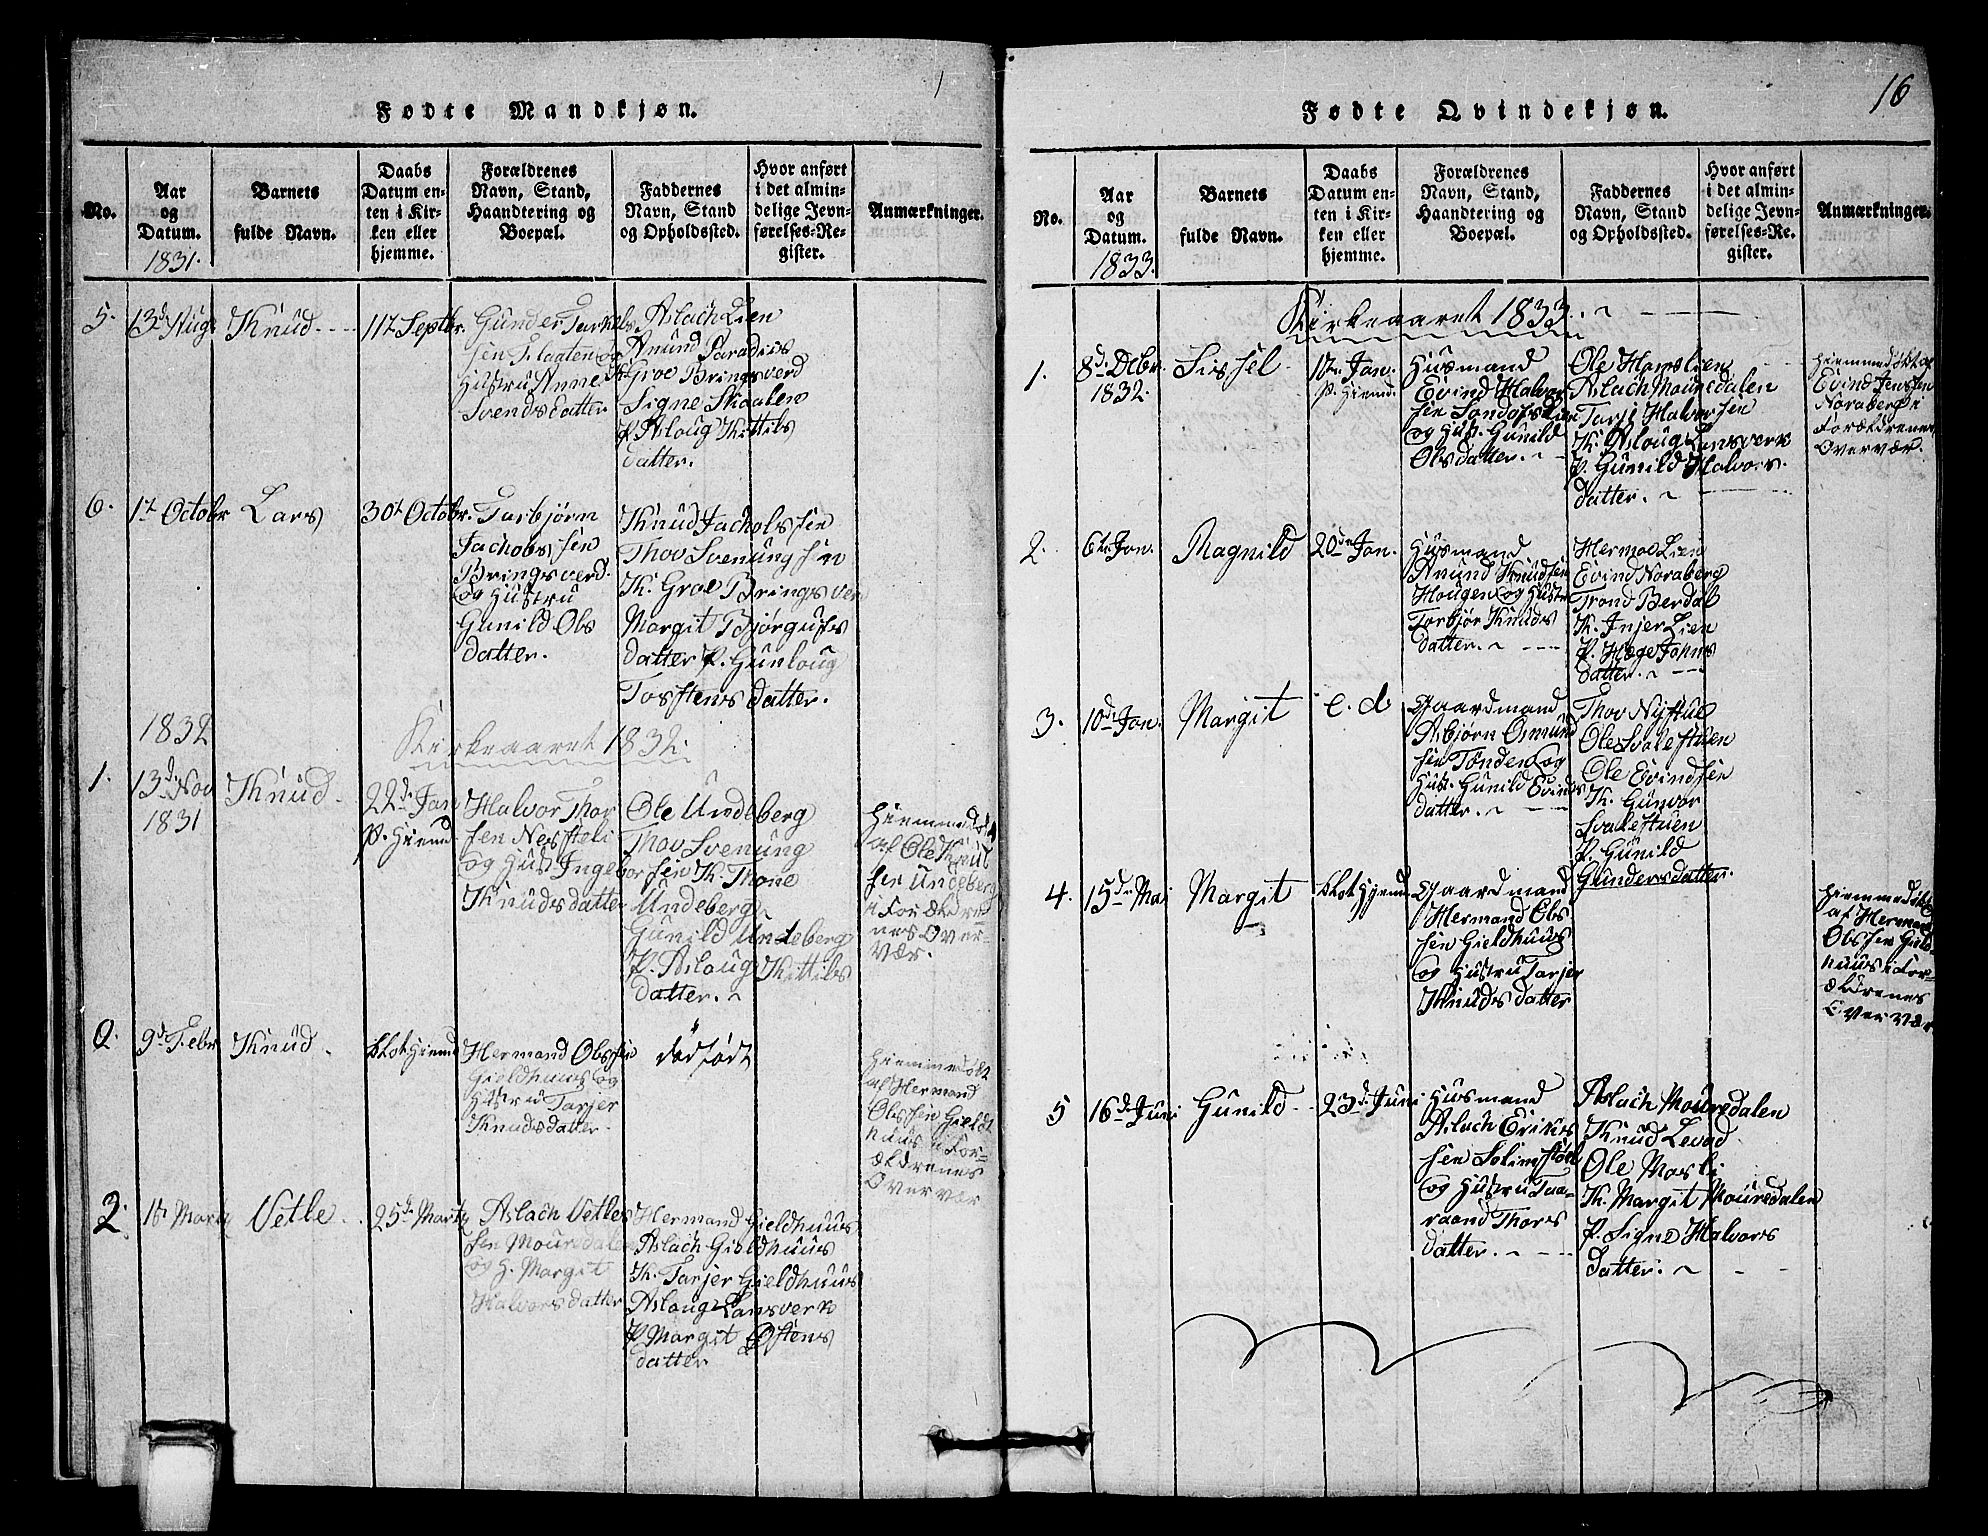 Fødte Mandkjøn.
No.
Aar
og
Datum.
1831.
Barnets
fulde Navn.
Daabs
Datum en-
ten i Kir-
ken eller
hjemme.
Forældrenes
Navn, Stand,
Haandtering og
Boepæl.
Faddernes
Navn, Stand
og Opholdssted.
Hvor anført
i det almin-
delige Jevn-
førelses-Re-
gister.
Anmærkninger.
5.
13d Aug.
Knud
11t Septbr.
Gunder Tarkels
sen Slaaten og
Hustru Anne
Svendsdatter
Aslach Lien
Anund Paradiis
K. Groe Bringsverd
Signe Skaalen
P. Aslaug Kittils
datter.
6.
1t Octobr
Lars
30t Octobr.
Tarbjørn
Jachobs sen
Bringsverd.
og Hustru
Gunild Ols
datter.
Knud Jachobs sen
Thov Svenung sen
K. Groe Bringsver
Margit Bjørgulfs
datter P. Gunloug
Tostens datter.
1832
Kirkeaaret 1832.
1.
13d Nov
1831
Knud
22d Jan
P. Hiemd
Halvor Thor
sen Nersteli
og Hust Ingebor
Knudsdatter
Ole Undeberg
Thov Svenung
sen K. Thone
Undeberg
Gunild Undeberg
P. Aslaug Kittils
datter.
Hiemmedøbt
af Ole Knud
sen Undeberg
i Forældre
nes Over-
vær.
9d Febr
Knud
blot Hiemd
Hermand Ols sen
Gieldhuus og
Hustru Tarjer
Knudsdatter
dødfødt
Hiemmedøbt
af Hermand
Ols sen Gield
huus i For-
ældrenes
Overvær
2.
1t Martz
Vetle
25d Martz
Aslach Vetles
sen Mouredalen
og H. Margit
Halvors datter
Hermand Gieldhuus
Aslach Gieldhuus
K. Tarjer Gieldhuus
Aslaug Lansverk
P. Margit Østens
datter
16
Fødte Qvindekjøn.
No.
Aar
og
Datum.
1833.
Barnets
fulde Navn.
Daabs
Datum en-
ten i Kir-
ken eller
hjemme.
Forældrenes
Navn, Stand,
Haandtering og
Boepæl.
Faddernes
Navn, Stand
og Opholdssted.
Hvor anført
i det almin-
delige Jevn-
førelses-Re-
gister.
Anmærkninger.
Kirkeaaret 1833.
1.
8d Dcbr.
1832.
Sissel
1t Jan.
P. Hiemd.
Husmand
Eivind Halvor
sen
og Hust. Gunild
Olsdatter.
Ole Hamslien
Aslach Mouredalen
Tarje Halvorsen
K. Aslaug Lansverk
P. Gunild Halvors.
datter.
Hiemmedøbt af
Evind Jenssen
Noraberg i
Forældrenes
Overvær.
2.
6t Jan.
Ragnild
20d Jan.
Husmand
Anund Knudsen
Hougen og Hustr
Torbjør Knuds
datter.
Hermoe Lien
Eivind Noraberg
Trond Berdal
K. Injer Lien
P. Hæge Johns
datter.
3.
10d Jan.
Margit
e. d
Gaardmand
Asbjørn Osmund
sen Tønden og
Hust. Gunild Evinds
datter.
Thov Nystul
Ole Svalestuen
Ole Evindsen
K. Gunvor
Svalestuen
P. Gunild
Gundersdatter.
4.
15d Mai
Margit
blot Hjemd
Gaardmand
Hermand Ols
sen Gieldhuus
og Hustru Tarjer
Knudsdatter
Hiemmedøbt
af Hermand
Ols sen Gield
huus i For-
ældrenes
Overvær
5
16d Juni
Gunild
23d Juni
Husmand
Aslach Eriks
sen
og Hustru Taa-
raand Thors
datter.
Aslach Mouredalen
Knud Levad
Ole Mosli
K. Margit Mouredalen
P. Signe Halvors
datter.